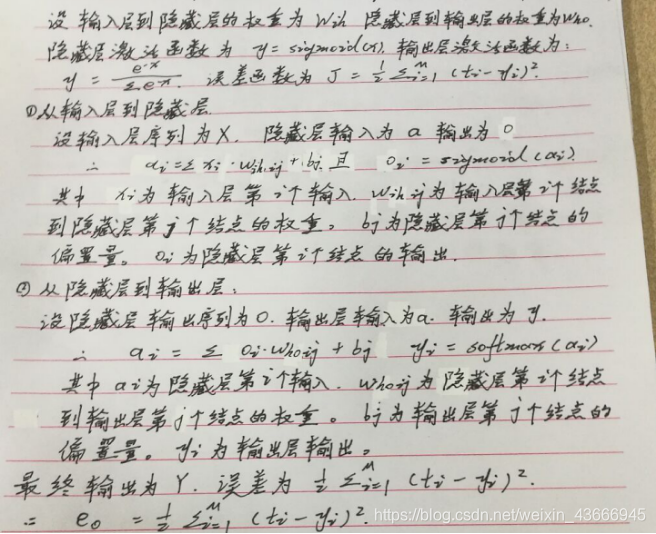 设输入层到隐藏层的权重为Wih 隐藏层到输出层的权重为Who.
隐藏层激活函数为 y=sigmoid(x). 输出层激活函数为:
y = e^-x / Σe^-x. 误差函数为 J = 1/2 Σ^M_i=1 (ti-yi)^2.
①从输入层到隐藏层.
设输入层序列为X. 隐藏层输入为a 输出为O
∴ ai=Σ xi·wih,ij + bj 且 oi = sigmoid(ai)
其中 xi为输入层第i个输入. wih,ij为输入层第i个结点
到隐藏层第j个结点的权重。bj为隐藏层第j个结点的
偏置量。oi为隐藏层第i个结点的输出.
②从隐藏层到输出层:
设隐藏层输出序列为O. 输出层输入为a. 输出为y.
∴ ai = Σ oi·who,ij + bj yi = softmax(ai)
其中ai为隐藏层第i个输入. who,ij为隐藏层第i个结点
到输出层第j个结点的权重。bj为输出层第j个结点的
偏置量。yi为输出层输出。
最终输出为Y. 误差为 1/2 Σ^M_i=1 (ti-yi)^2.
∴ e0 = 1/2 Σ^M_i=1 (ti-yi)^2.
https://blog.csdn.net/weixin_43666945